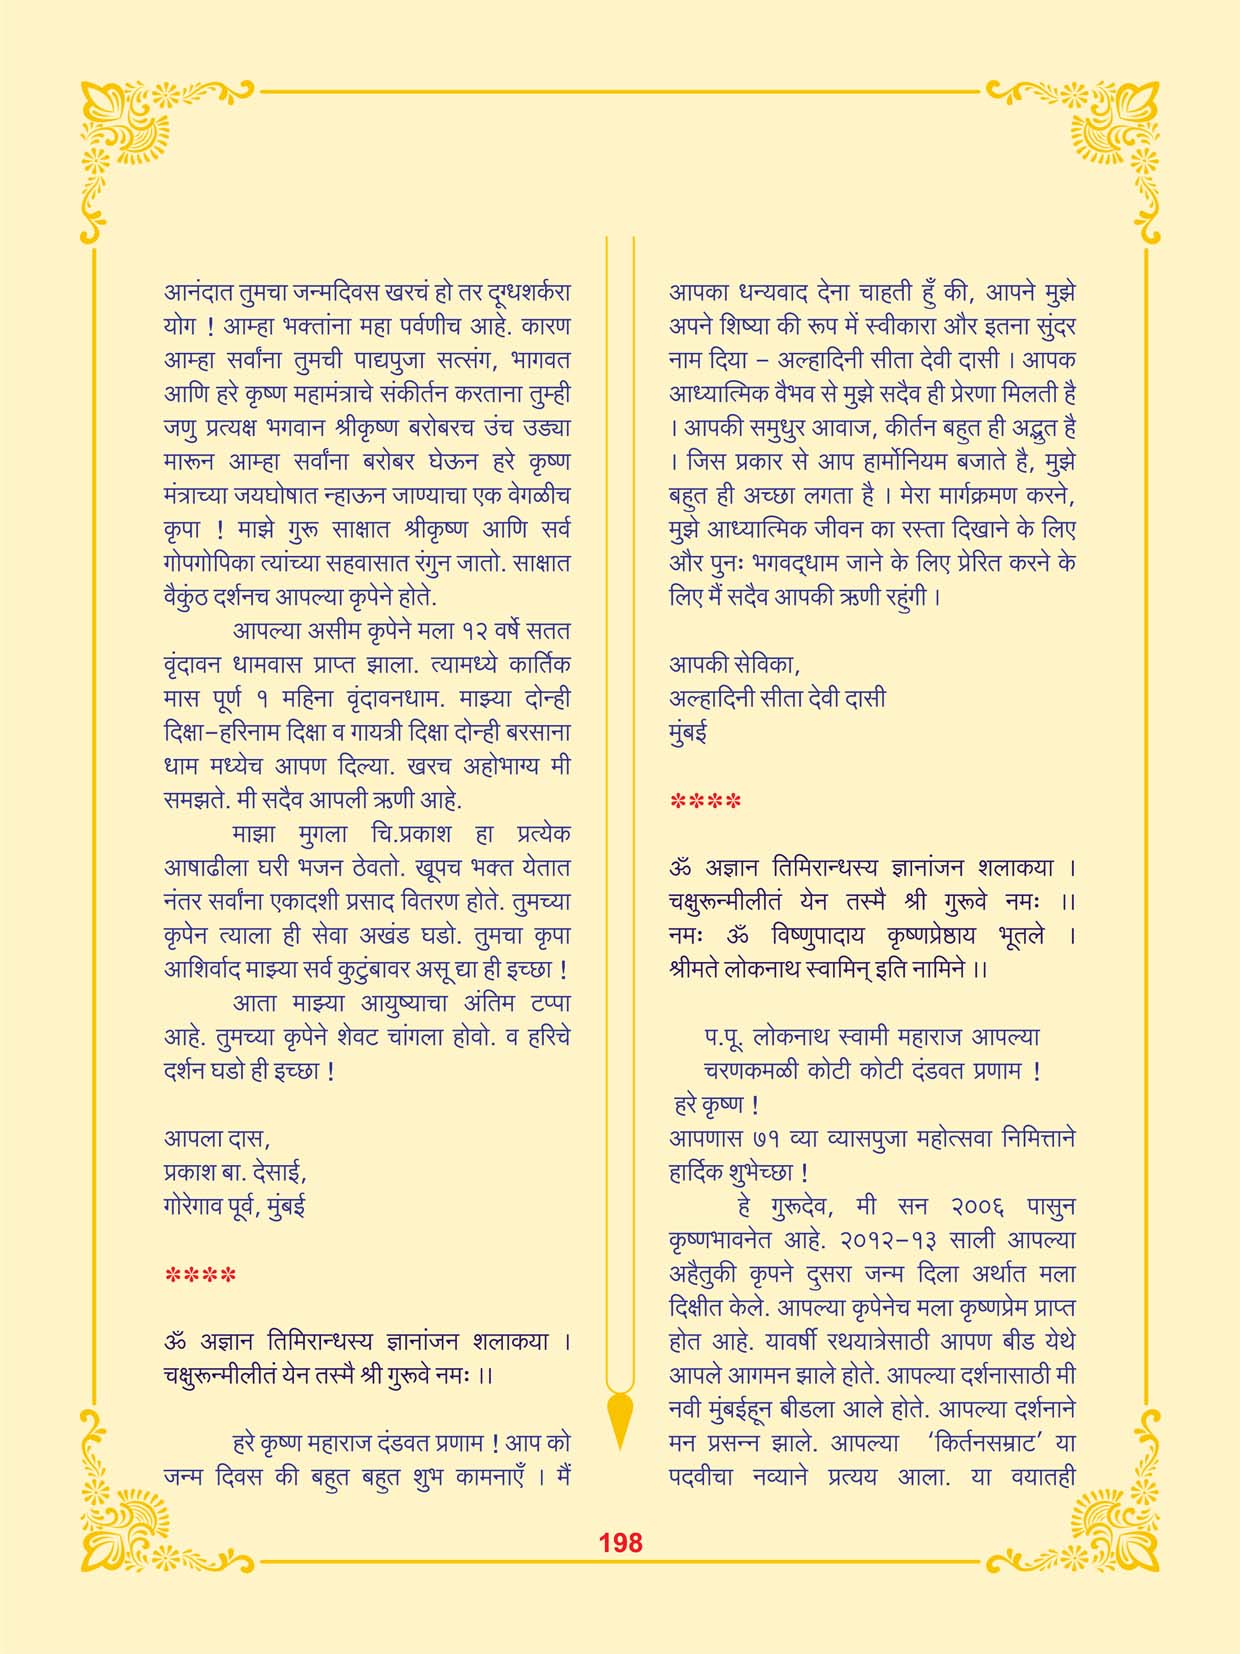 आनंदात तुमचा जन्मदिवस खरचं हो तर दूग्धशर्करा
योग ! आम्हा भक्तांना महा पर्वणीच आहे. कारण
आम्हा सर्वांना तुमची पाद्यपुजा सत्संग, भागवत
आणि हरे कृष्ण महामंत्राचे संकीर्तन करताना तुम्ही
जणु प्रत्यक्ष भगवान श्रीकृष्ण बरोबरच उंच उड्या
मारून आम्हा सर्वांना बरोबर घेऊन हरे कृष्ण
मंत्राच्या जयघोषात न्हाऊन जाण्याचा एक वेगळीच
कृपा ! माझे गुरू साक्षात श्रीकृष्ण आणि सर्व
गोपगोपिका त्यांच्या सहवासात रंगुन जातो. साक्षात
वैकुंठ दर्शनच आपल्या कृपेने होते.
आपल्या असीम कृपेने मला १२ वर्षे सतत
वृंदावन धामवास प्राप्त झाला. त्यामध्ये कार्तिक
मास पूर्ण १ महिना वृंदावनधाम. माझ्या दोन्ही
दिक्षा-हरिनाम दिक्षा व गायत्री दिक्षा दोन्ही बरसाना
धाम मध्येच आपण दिल्या. खरच अहोभाग्य मी
समझते. मी सदैव आपली ऋणी आहे.
माझा मुगला चि.प्रकाश हा प्रत्येक
आषाढीला घरी भजन ठेवतो. खूपच भक्त येतात
नंतर सर्वांना एकादशी प्रसाद वितरण होते. तुमच्या
कृपेन त्याला ही सेवा अखंड घडो. तुमचा कृपा
आशिर्वाद माझ्या सर्व कुटुंबावर असू द्या ही इच्छा !
आता माझ्या आयुष्याचा अंतिम टप्पा
आहे. तुमच्या कृपेने शेवट चांगला होवो. व हरिचे
दर्शन घडो ही इच्छा !
आपला दास,
प्रकाश बा. देसाई,
गोरेगाव पूर्व, मुंबई
****
ॐ अज्ञान तिमिरान्धस्य ज्ञानांजन शलाकया ।
चक्षुरून्मीलीतं येन तस्मै श्री गुरूवे नमः ।।
हरे कृष्ण महाराज दंडवत प्रणाम ! आप को
जन्म दिवस की बहुत बहुत शुभ कामनाएँ । मैं
आपका धन्यवाद देना चाहती हुँ की, आपने मुझे
अपने शिष्या की रूप में स्वीकारा और इतना सुंदर
नाम दिया - अल्हादिनी सीता देवी दासी । आपक
आध्यात्मिक वैभव से मुझे सदैव ही प्रेरणा मिलती है
। आपकी समुधुर आवाज, कीर्तन बहुत ही अद्भुत है
। जिस प्रकार से आप हार्मोनियम बजाते है, मुझे
बहुत ही अच्छा लगता है । मेरा मार्गक्रमण करने,
मुझे आध्यात्मिक जीवन का रस्ता दिखाने के लिए
और पुनः भगवद्धाम जाने के लिए प्रेरित करने के
लिए मैं सदैव आपकी ऋणी रहुंगी ।
आपकी सेविका,
अल्हादिनी सीता देवी दासी
मुंबई
****
ॐ अज्ञान तिमिरान्धस्य ज्ञानांजन शलाकया ।
चक्षुरून्मीलीतं येन तस्मै श्री गुरूवे नमः ।।
नमः ॐ विष्णुपादाय कृष्णप्रेष्ठाय भूतले ।
श्रीमते लोकनाथ स्वामिन् इति नामिने ।।
प.पू. लोकनाथ स्वामी महाराज आपल्या
चरणकमळी कोटी कोटी दंडवत प्रणाम !
हरे कृष्ण !
आपणास ७१ व्या व्यासपुजा महोत्सवा निमित्ताने
हार्दिक शुभेच्छा !
हे गुरूदेव, मी सन २००६ पासुन
कृष्णभावनेत आहे. २०१२-१३ साली आपल्या
अहैतुकी कृपने दुसरा जन्म दिला अर्थात मला
दिक्षीत केले. आपल्या कृपेनेच मला कृष्णप्रेम प्राप्त
होत आहे. यावर्षी रथयात्रेसाठी आपण बीड येथे
आपले आगमन झाले होते. आपल्या दर्शनासाठी मी
नवी मुंबईहून बीडला आले होते. आपल्या दर्शनाने
मन प्रसन्न झाले. आपल्या ‘किर्तनसम्राट’ या
पदवीचा नव्याने प्रत्यय आला. या वयातही
198